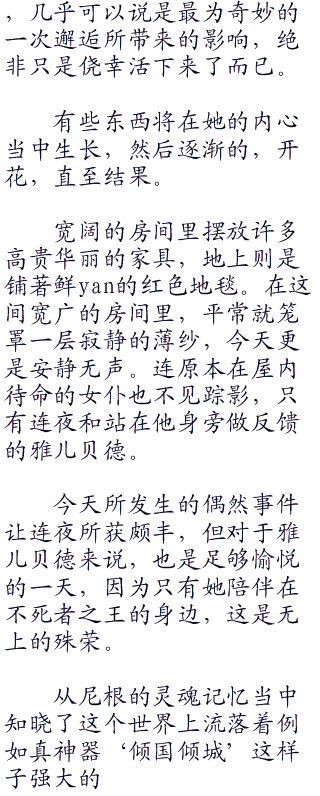 ，几乎可以说是最为奇妙的
一次邂逅所带来的影响，绝
非只是侥幸活下来了而已。
有些东西将在她的内心
当中生长，然后逐渐的，开
花，直至结果。
宽阔的房间里摆放许多
高贵华丽的家具，地上则是
铺著鲜yan的红色地毯。在这
间宽广的房间里，平常就笼
罩一层寂静的薄纱，今天更
是安静无声。连原本在屋内
待命的女仆也不见踪影，只
有连夜和站在他身旁做反馈
的雅儿贝德。
今天所发生的偶然事件
让连夜所获颇丰，但对于雅
儿贝德来说，也是足够愉悦
的一天，因为只有她陪伴在
不死者之王的身边，这是无
上的殊荣。
从尼根的灵魂记忆当中
知晓了这个世界上流落着例
如真神器‘倾国倾城’这样
子强大的